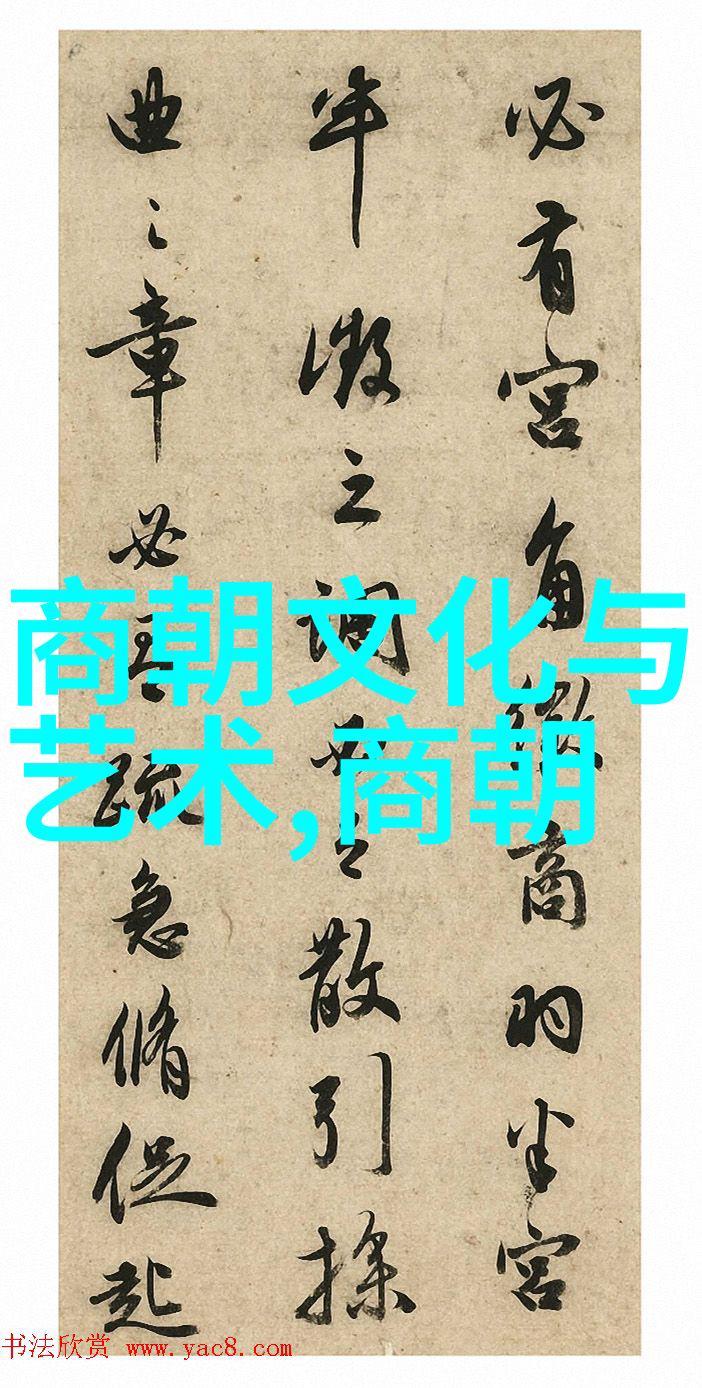 必有宫角徵商羽半宫
半徵之調散引操
曲之章必疏急脩促起
商朝文化与
艺术,商朝
书法欣赏 www.yac8.com